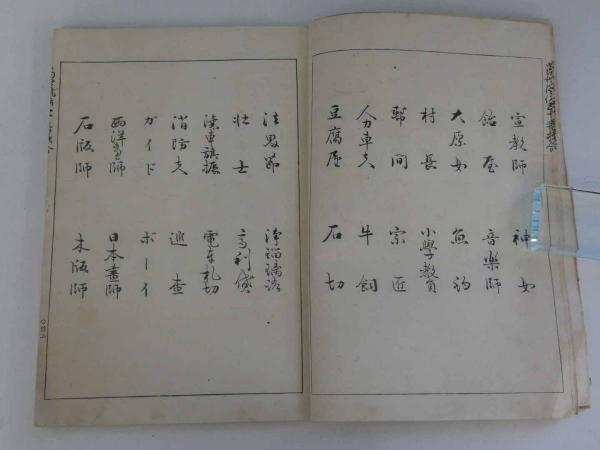 宣教師 神女
飴屋 音樂師
大原女 魚釣
村長 小學教員
幇間 宗匠
人力車夫 牛飼
豆腐屋 石切
法界節 浄瑠璃語
壮士 高利貸
滊車旗振 電車札切
消防夫 巡査
ガイド ボーイ
西洋畫師 日本畫師
石版師 木版師